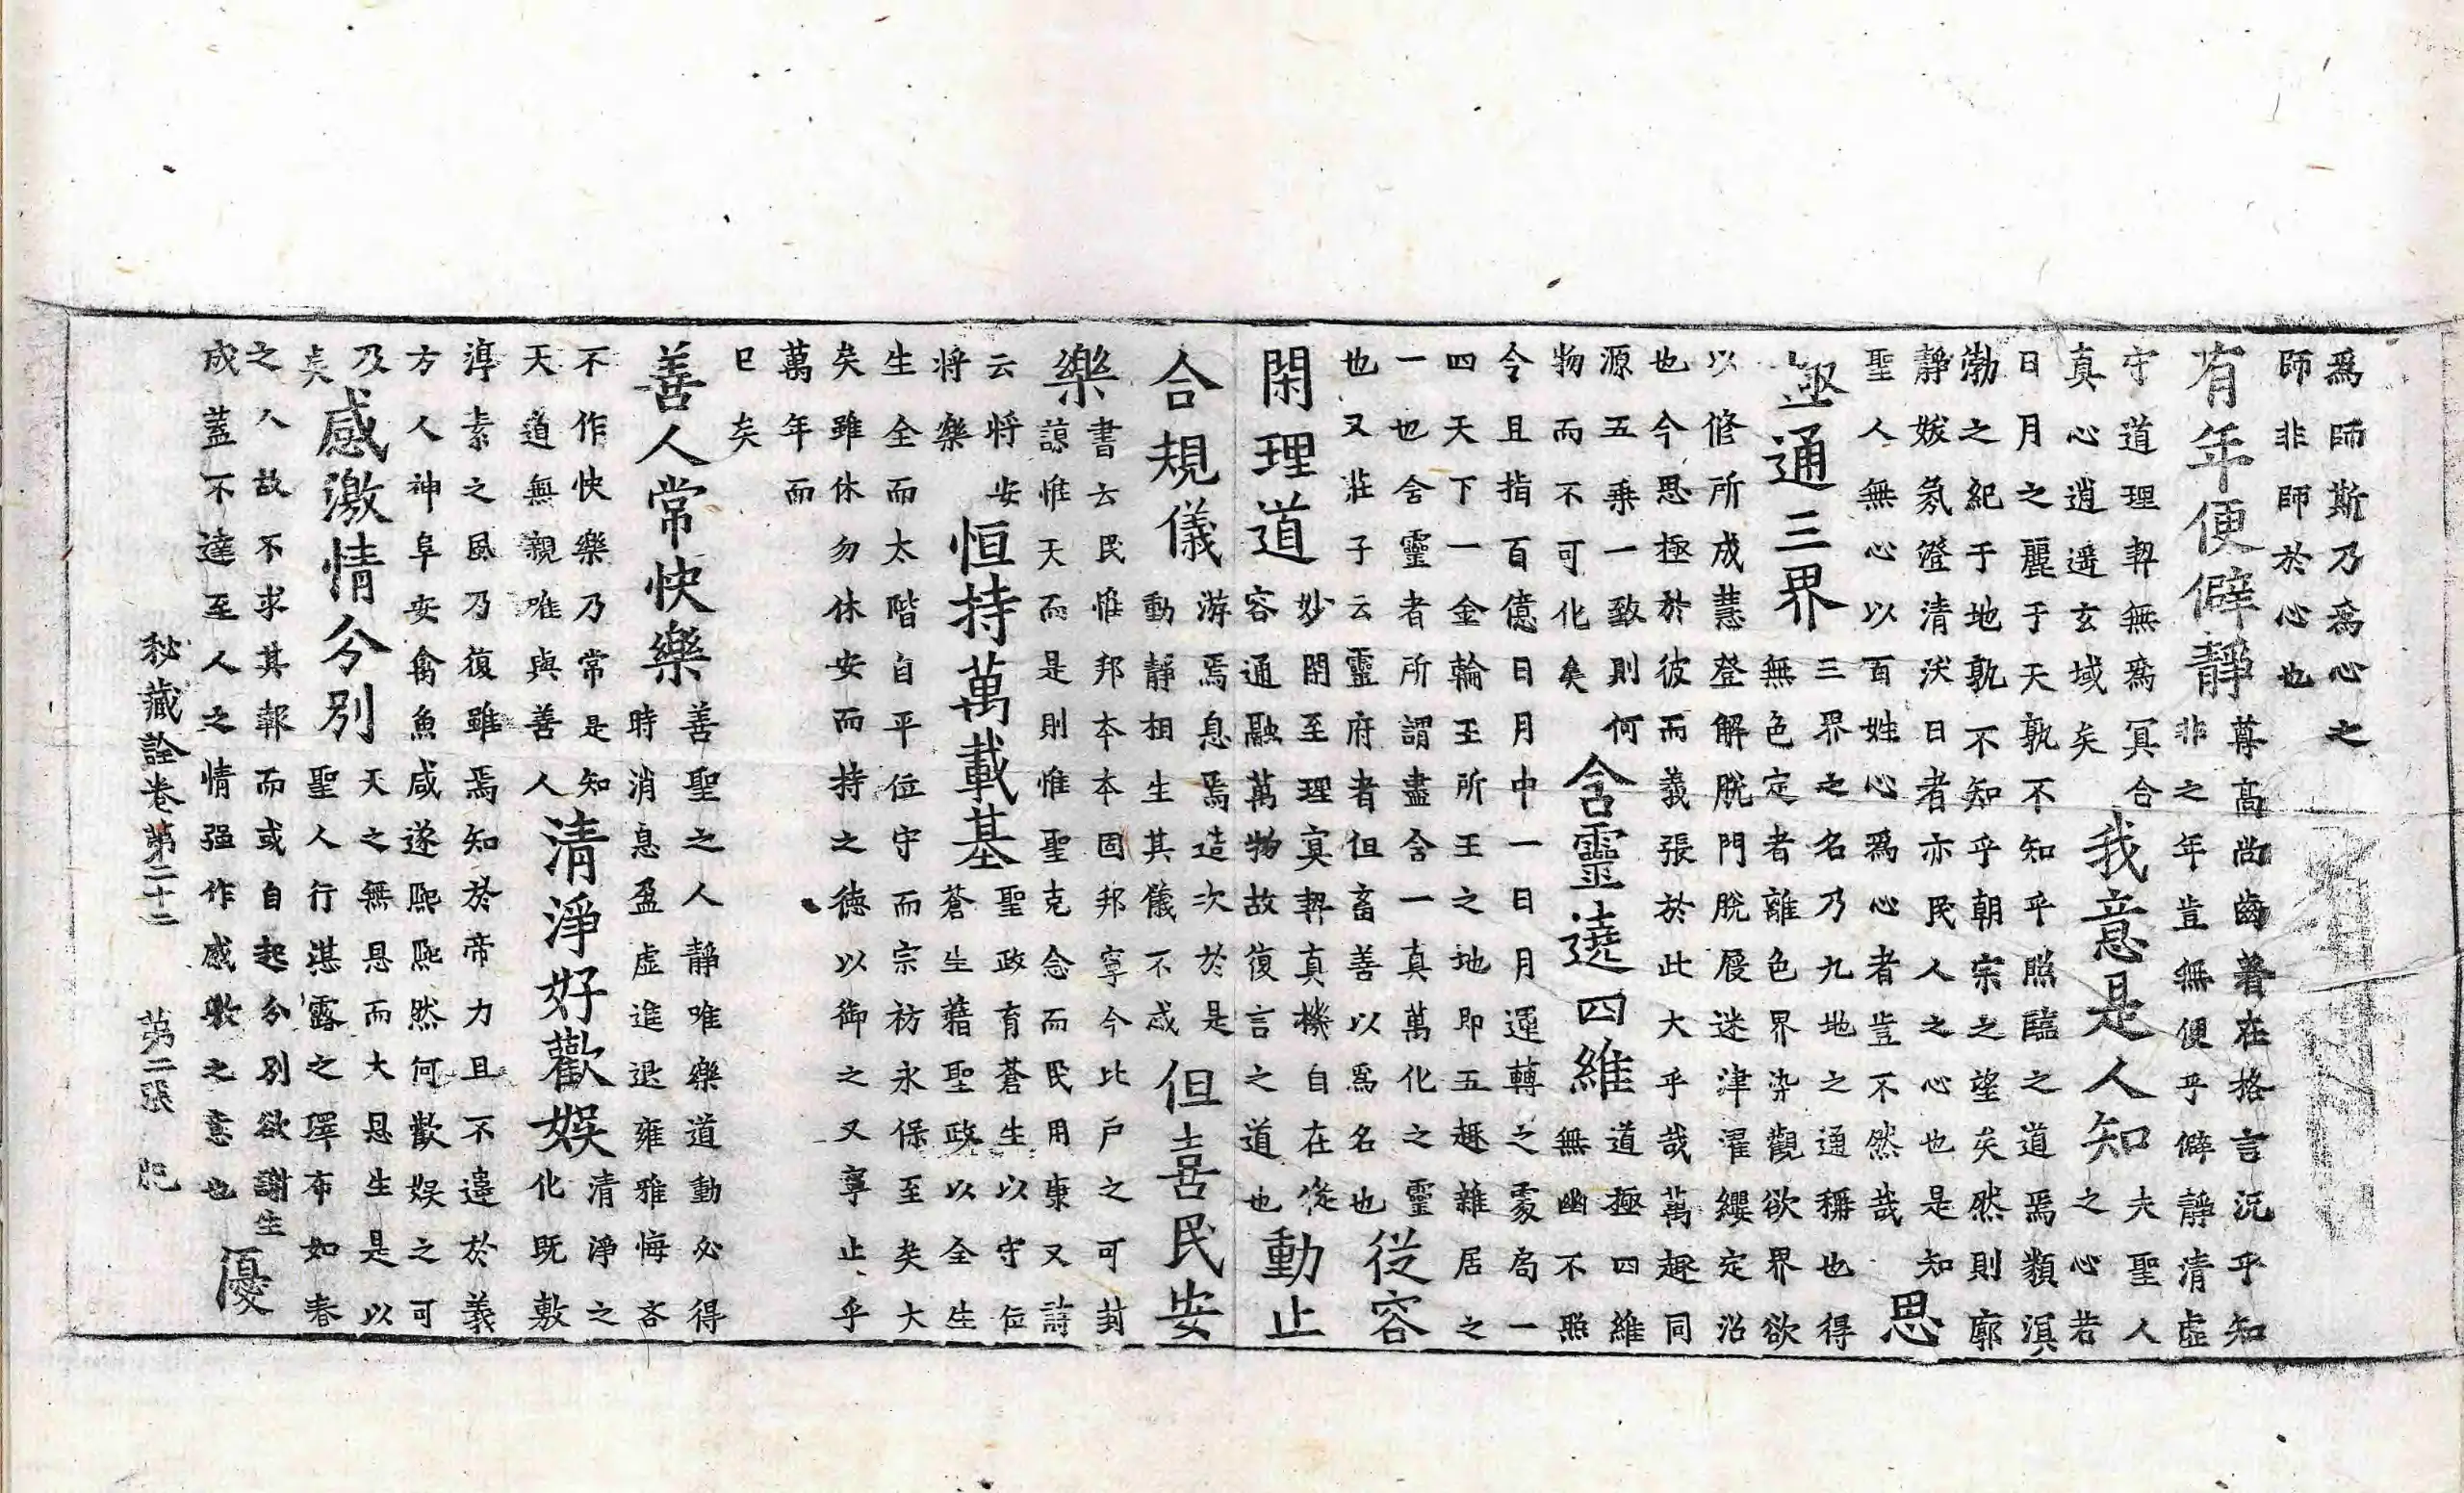 爲師斯乃爲心之
師非師於心也
有年便僻靜
尊高尚齒著在格言況乎知
非之年豈無便乎僻靜清虛
守道理契無爲冥合
真心逍遥玄域矣
我意是人知
夫聖人
之心若
日月之麗于天孰不知乎照臨之道焉類溟
渤之紀于地孰不知乎朝宗之望矣然則廓
靜妭氛澄清沃日者亦民人之心也是知
聖人無心以百姓心爲心者豈不然哉
思
亟通三界
三界之名乃九地之通稱也得
無色定者離色界染觀欲界欲
以修所成慧登解脫門脫屣迷津濯纓定沼
也今思極於彼而義張於此大乎哉萬趣同
源五乘一致則何
物而不可化矣
含靈遶四維
道極四維
無幽不照
今且指百億日月中一日月運轉之處局一
四天下一金輪王所王之地即五趣雜居之
一也含靈者所謂盡含一真萬化之靈
也又莊子云靈府者但畜善以爲名也
從容
閑理道
妙閑至理冥契真機自在從
容通融萬物故復言之道也
動止
合規儀
游焉息焉造次於是
動靜相生其儀不忒
但喜民安
樂
書云民惟邦本本固邦寧今比戶之可封
諒惟天而是則惟聖克念而民用康又詩
云將安
將樂
恒持萬載基
聖政育蒼生以守位
蒼生藉聖政以全生
生全而太階自平位守而宗祊永保至矣大
矣雖休勿休安而持之德以御之又寧止乎
萬年而
已矣
善人常快樂
善聖之人靜唯樂道動必得
時消息盈虛進退雍雅悔吝
不作快樂乃常是知
天道無親唯與善人
清淨好歡娛
清淨之
化既敷
淳素之風乃復雖焉知於帝力且不違於義
方人神阜安禽魚咸遂熙熙然何歡娛之可
及
矣
感激情分別
天之無恩而大恩生是以
聖人行湛露之澤布如春
之人故不求其報而或自起分別欲謝生
成蓋不達至人之情强作感歇之意也
優
秘藏詮卷第二十二 第二張